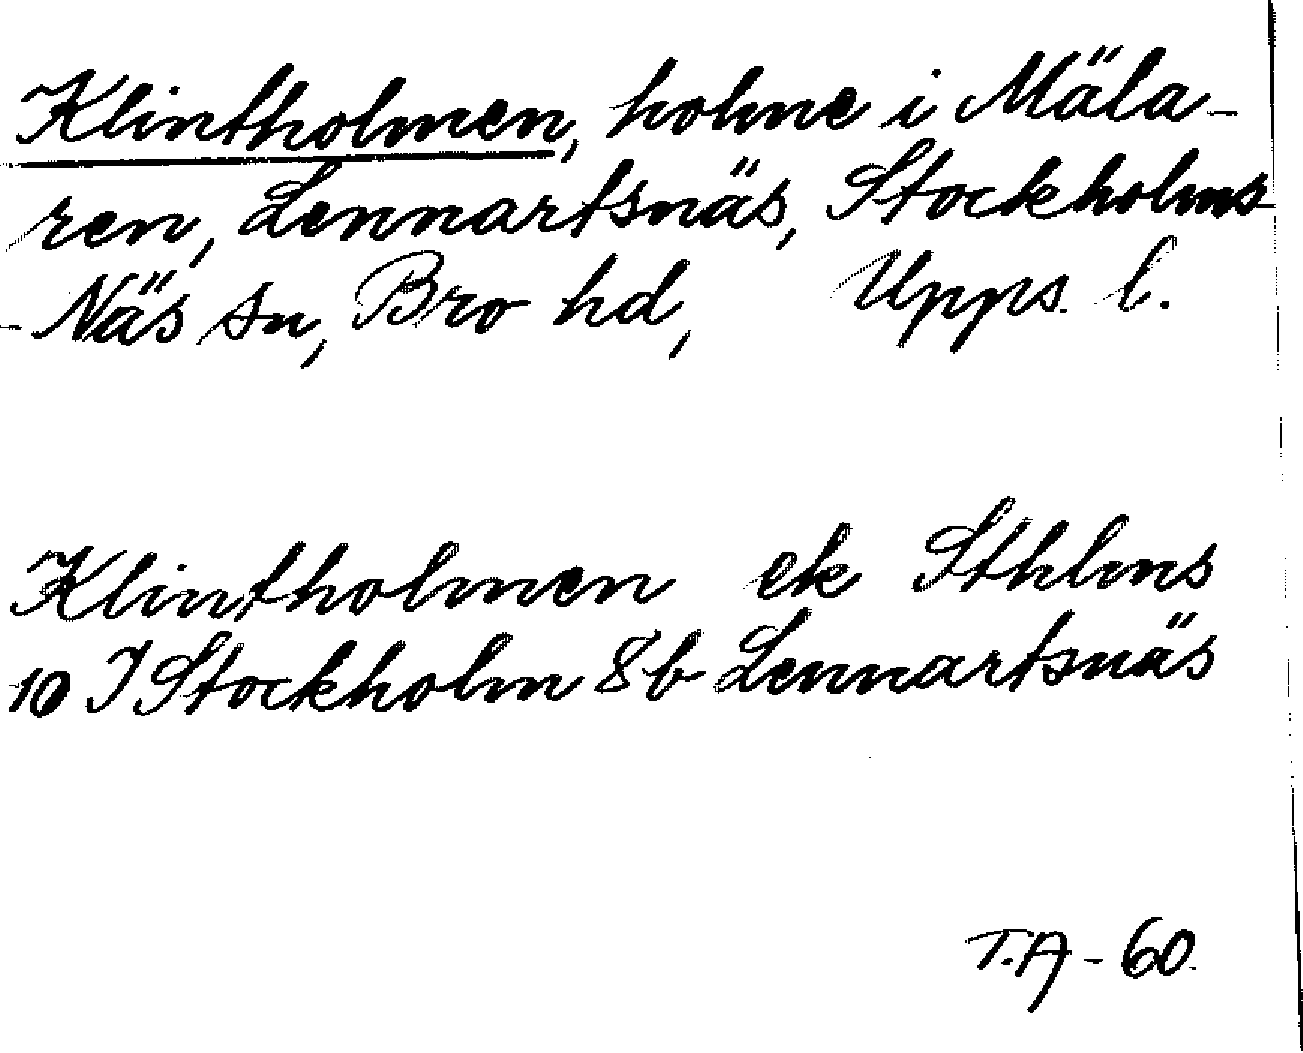 Klintholmen, holme i Mäla-
ren, Lennartsnäs, Stockholms
-Näs sn, Bro hd, Upps. l.
Klintholmen ek Sthlms
10 I Stockholm 8b Lennartsnäs
T.A-60